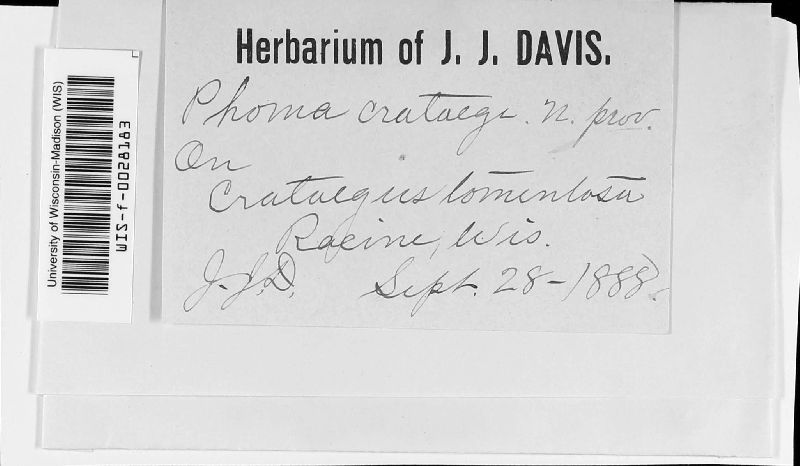 Herbarium of J. J. DAVIS.
Phoma crataegi. n. prov.
On
Crataegus tomentosa
Racine, Wis.
J.J.D. Sept. 28-1888.
University of Wisconsin-Madison (WIS)
WIS-f-0028183